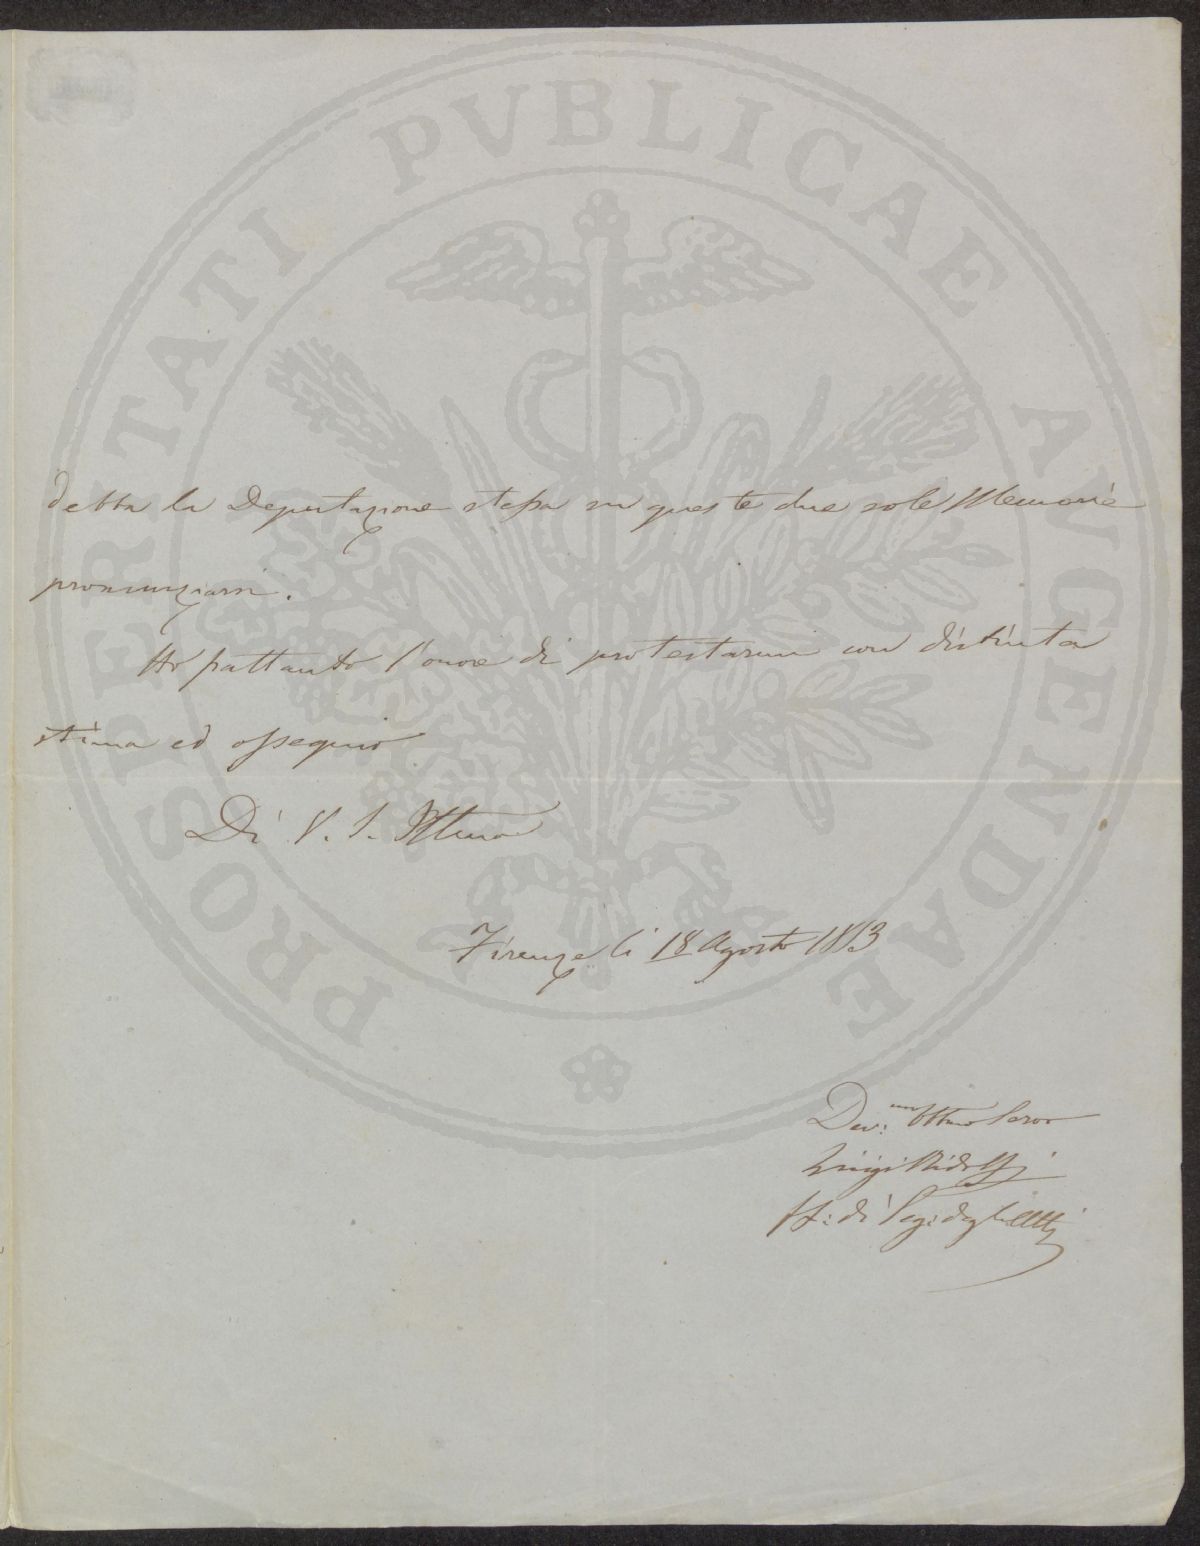 PROSPERITATI PVBLICAE AVGENDAE
debba la Deputazione stessa su queste due sole Memorie
pronunziarsi.
Ho frattanto l'onore di protestarmi con distinta
stima ed ossequio
Di V. S. Illma
Firenze li 18 Agosto 1853
Dev:mo Obbmo Servo
Luigi Ridolfi
ff: di Seg: degli Atti